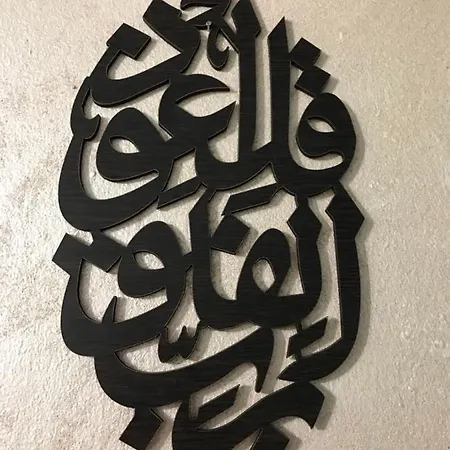 قل أعوذ
برب الفلق